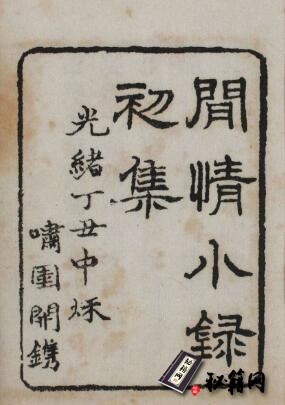 閒情小録
初集
光緒丁丑中秌
嘯園開鐫
秘籍网
秘籍网